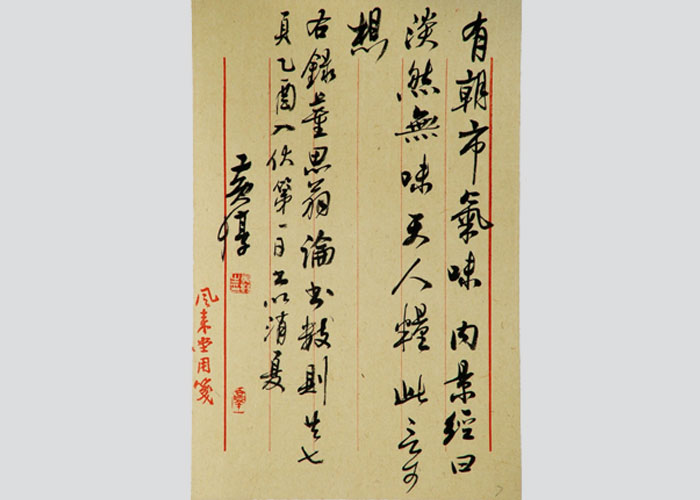 有朝市氣味內景經曰
淡然無味天人糧此言可
想
右錄董思翁論書數則共七
頁乙酉入伏第一日書以消夏
黃惇
風來堂用箋